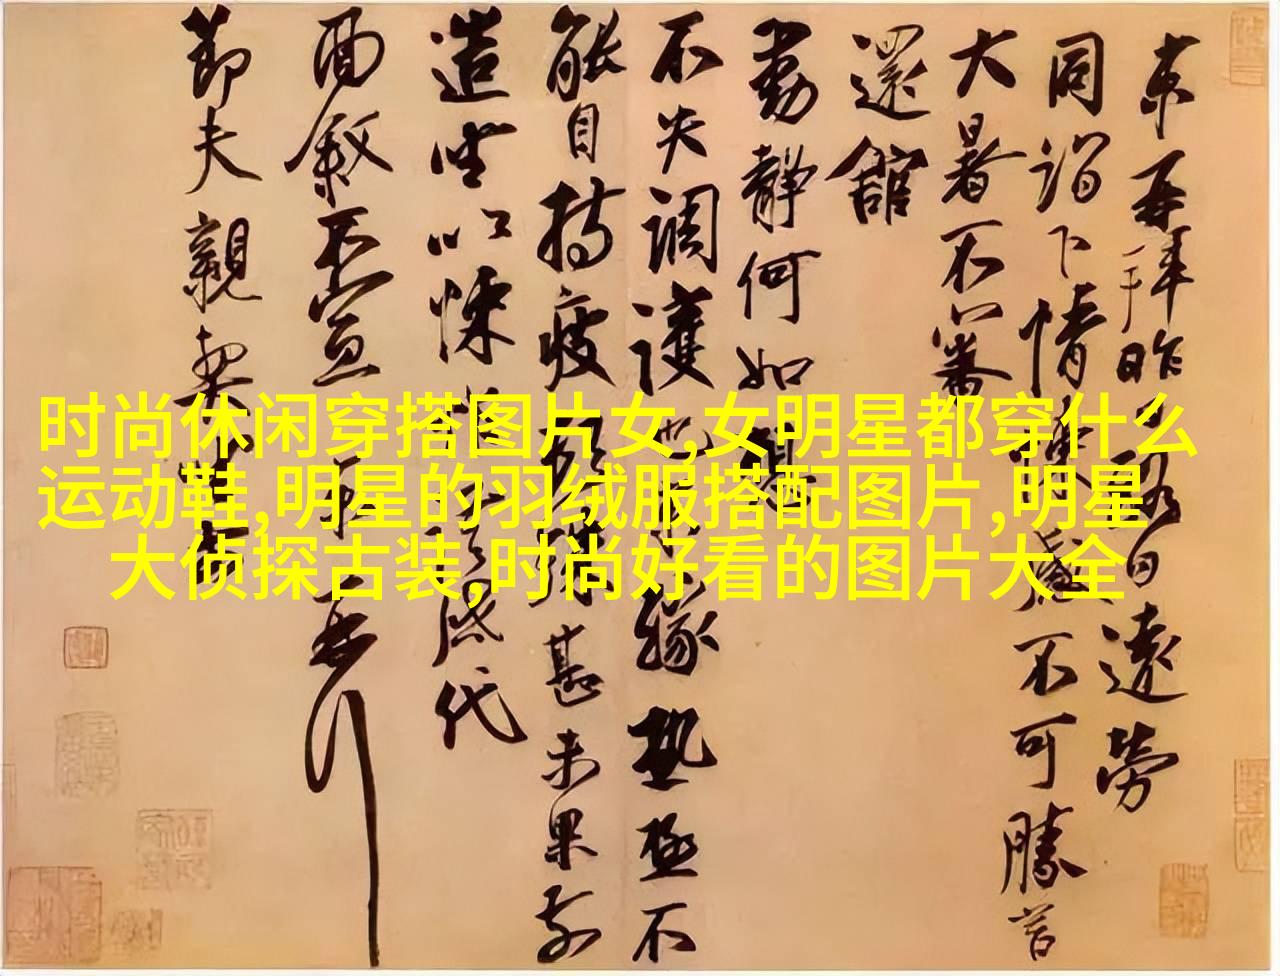 京再拜昨日遠勞
同詣下情悚感不可勝言
大暑不審
還館
動靜何如想
不失調護也緣熱極不
能自持疲頓殊甚未果前
造坐以悚感代
面敘不宣京
節夫親契
时尚休闲穿搭图片女,女明星都穿什么
运动鞋,明星的羽绒服搭配图片,明星
大侦探古装,时尚好看的图片大全